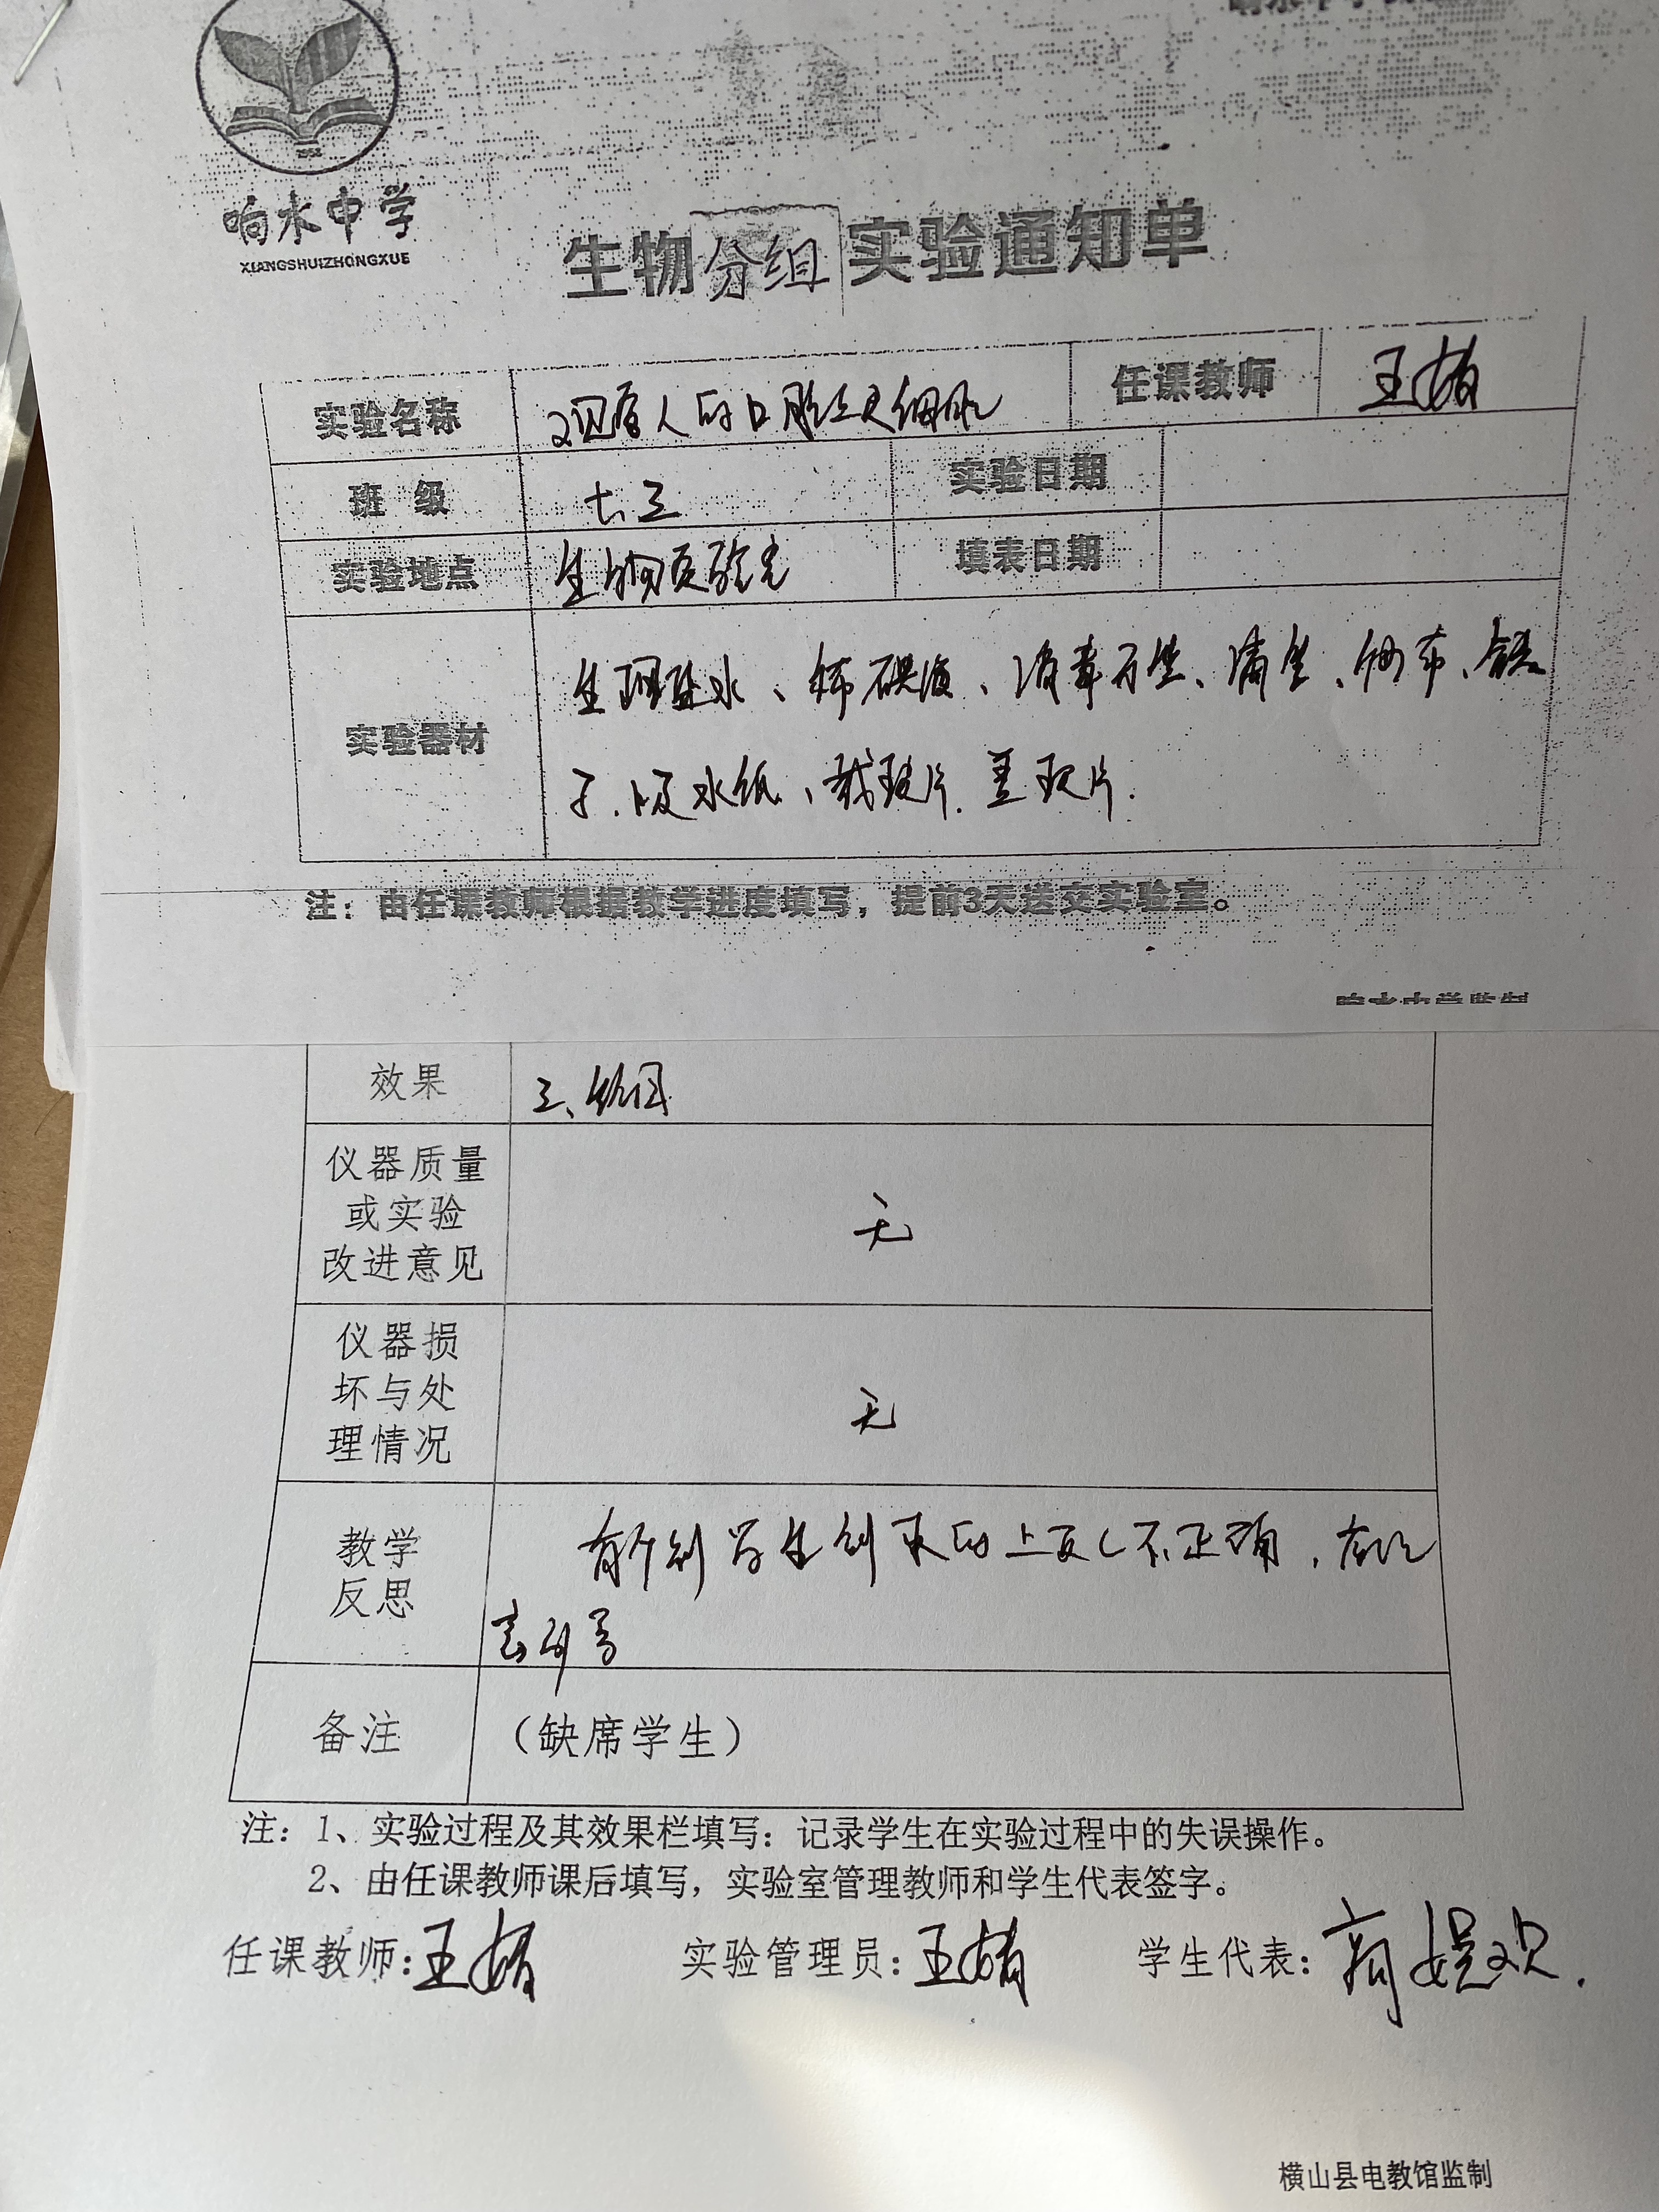 1952
响水中学
XIANGSHUIZHONGXUE
生物分组实验通知单
实验名称 观察人的口腔上皮细胞 任课教师 王娟
班 级 七.三 实验日期
实验地点 生物实验室 填表日期
实验器材 生理盐水、稀碘液、消毒牙签、滴管、纱布、镊
子.吸水纸、载玻片.盖玻片.
注：由任课教师根据教学进度填写，提前3天送交实验室。
响水中学监制
效果 三、绘图
仪器质量
或实验
改进意见
无
仪器损
坏与处
理情况
无
教学
反思
有个别学生刮取的上皮 不正确,
备注 （缺席学生）
注：1、实验过程及其效果栏填写：记录学生在实验过程中的失误操作。
2、由任课教师课后填写，实验室管理教师和学生代表签字。
任课教师:王娟 实验管理员:王娟 学生代表:
横山县电教馆监制